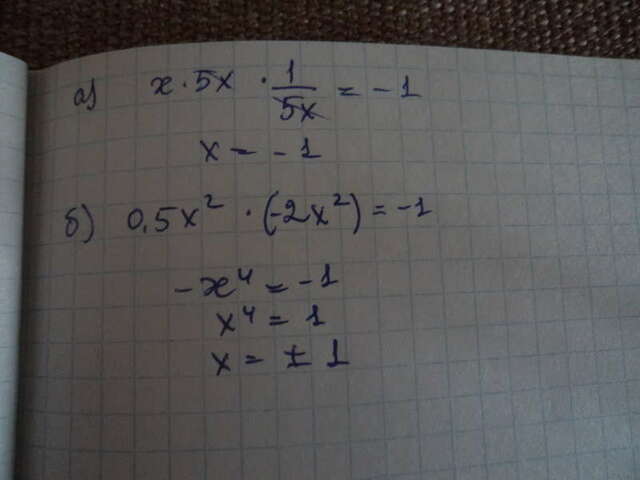 а) x · 5x · 1/5x = -1
x = -1
б) 0,5x² · (-2x²) = -1
-x⁴ = -1
x⁴ = 1
x = ± 1